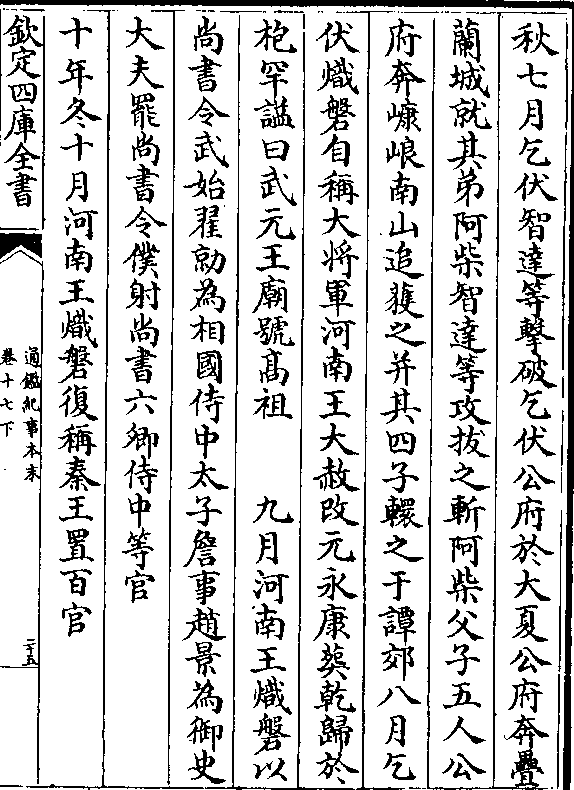 秋七月乞伏智達等擊破乞伏公府於大夏公府奔疊
蘭城就其弟阿柴智達等攻拔之斬阿柴父子五人公
府奔嵻㟍南山追獲之并其四子轘之于譚郊八月乞
伏熾磐自稱大將軍河南王大赦改元永康葬乾歸於
枹罕謚曰武元王廟號髙祖　九月河南王熾磐以
尚書令武始翟勍為相國侍中太子詹事趙景為御史
大夫罷尚書令僕射尚書六卿侍中等官
十年冬十月河南王熾磐復稱秦王置百官
欽定四庫全書
通鑑紀事本末
卷十七下
二十五